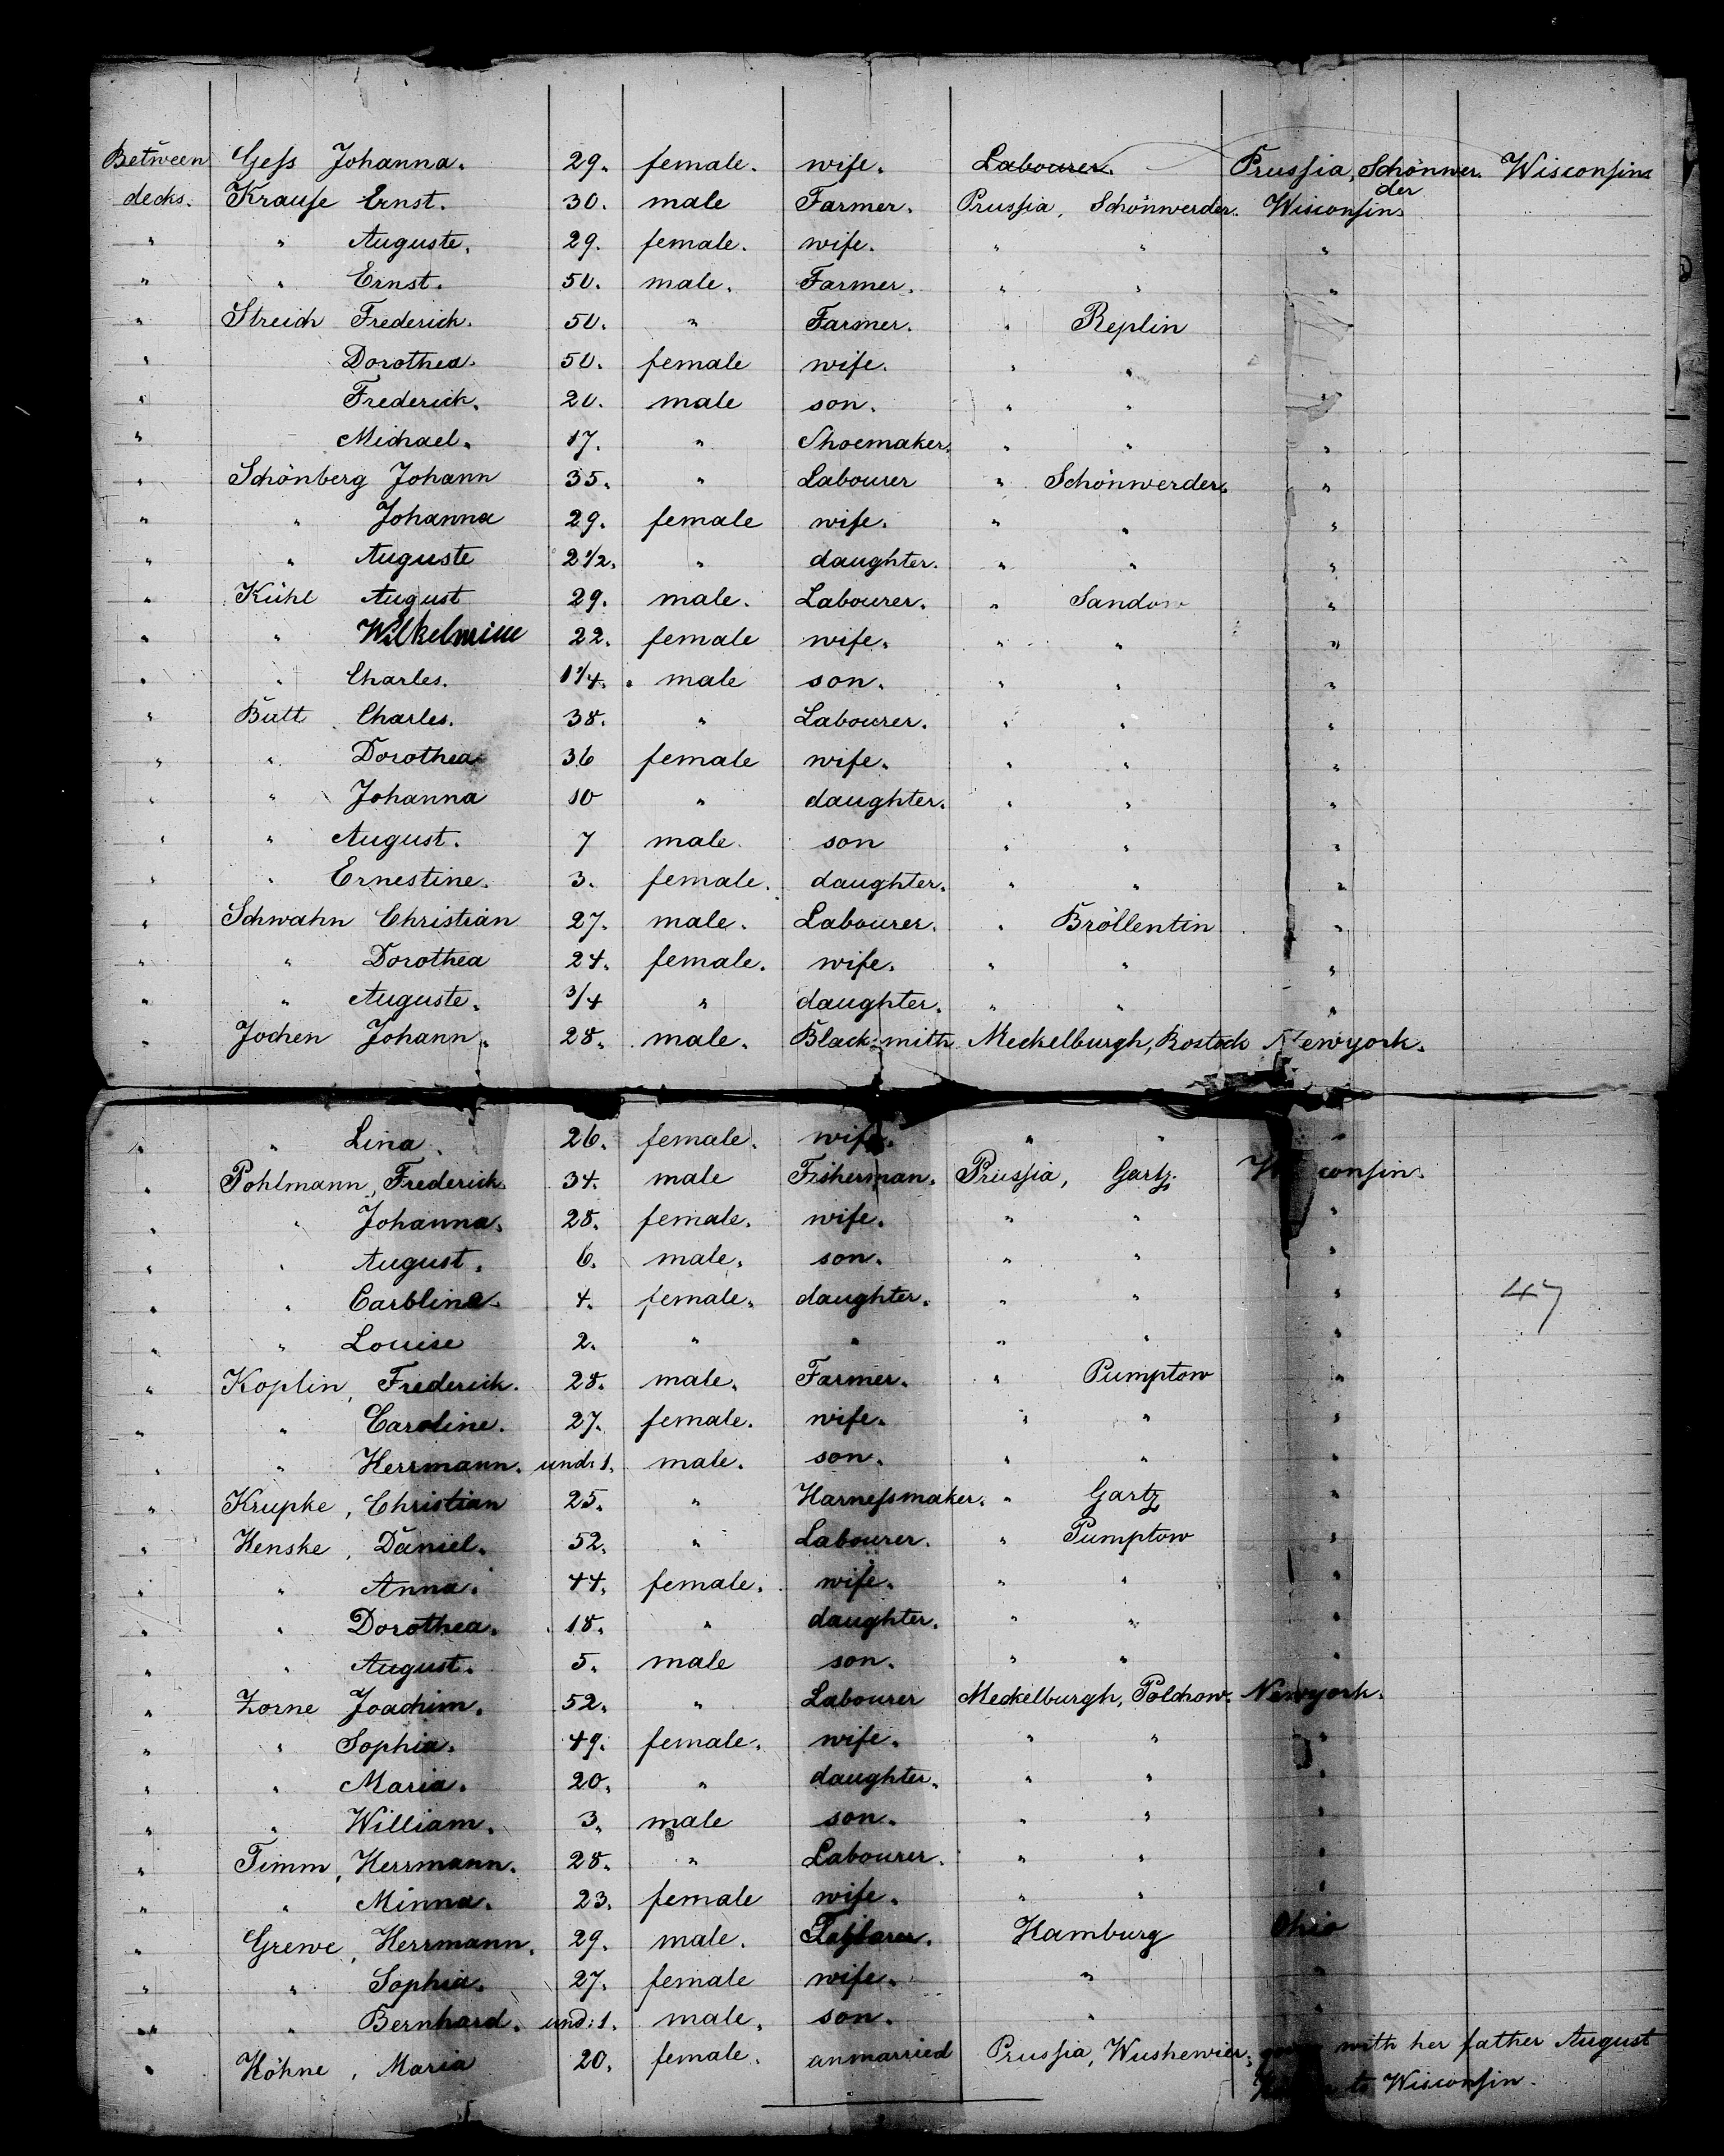 Between Gess Johanna. 29. female. wife. Labourer. Prussia, Schönwer. Wisconsin.
der
decks. Krause Ernst. 30. male Farmer. Prussia, Schönwerder. Wisconsin.
" " Auguste. 29. female. wife. " " "
" " Ernst. 50. male. Farmer. " " "
" Streich Frederich. 50. " Farmer. " Replin
" Dorothea. 50. female wife. " "
" Frederich. 20. male son. " " "
" Michael. 17. " Shoemaker. " " "
" Schönberg Johann 35. " Labourer " Schönwerder. "
" " Johanna 29. female wife. " " "
" " Auguste 2 1/2. " daughter. " " "
" Kühl August 29. male. Labourer. " Sandow "
" " Wilhelmine 22. female wife. " " "
" " Charles. 1 1/4. male son. " " "
" Butt Charles. 38. " Labourer. " " "
" " Dorothea 36 female wife. " " "
" " Johanna 10 " daughter. " " "
" " August. 7 male. son " " "
" " Ernestine. 3. female. daughter. " " "
" Schwahn Christian 27. male. Labourer. " Bröllentin "
" " Dorothea 24. female. wife. " " "
" " Auguste. 3/4 " daughter. " " "
" Jochen Johann. 28. male. Blacksmith Meckelburgh, Rostock Newyork.
" " Lina. 26. female. wife. " " "
" Pohlmann, Frederich. 34. male Fisherman. Prussia, Gartz. Wisconsin.
" " Johanna. 28. female. wife. " " "
" " August. 6. male. son. " " "
" " Carbline. 4. female. daughter. " " "
47
" " Louise 2. " " " " "
" Koplin, Frederich. 28. male. Farmer. " Pumptow "
" " Caroline. 27. female. wife. " " "
" " Herrmann. und. 1. male. son. " " "
" Krupke, Christian 25. " Harnessmaker. " Gartz "
" Henske, Daniel. 52. " Labourer. " Pumptow "
" " Anna. 44. female. wife. " " "
" " Dorothea. 18. " daughter. " " "
" " August. 5. male son. " " "
" Zorne Joachim. 52. " Labourer Meckelburgh, Polchow. Newyork.
" " Sophia. 49. female. wife. " " "
" " Maria. 20. " daughter. " " "
" " William. 3. male son. " " "
" Timm, Herrmann. 28. " Labourer. " " "
" " Minna. 23. female wife. " " "
" Grewe, Herrmann. 29. male. Hamburg Ohio
" " Sophia. 27. female wife. " "
" " Bernhard. und: 1. male. son. " "
" Höhne, Maria 20. female. unmarried Prussia, Wushewier, with her father August
to Wisconsin.